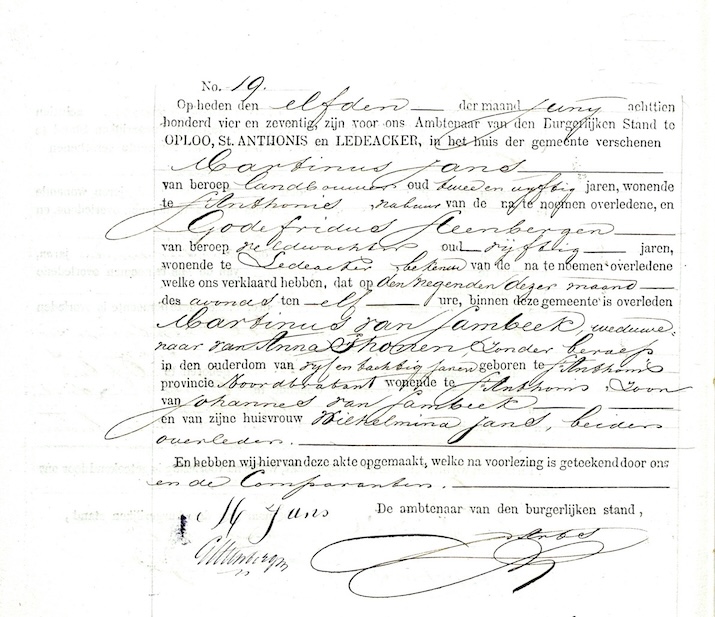 No. 19.
Op heden den elfden der maand Juny achttien
honderd vier en zeventig, zijn voor ons Ambtenaar van den Burgerlijken Stand te
OPLOO, St. ANTHONIS en LEDEACKER, in het huis der gemeente verschenen
Martinus Jans
van beroep landbouwer oud twee en vyftig jaren, wonende
te St Anthonis, nabuur van de na te noemen overledene, en
Godefridus Steenbergen
van beroep veldwachter oud vyftig jaren,
wonende te Ledeacker bekende van de na te noemen overledene
welke ons verklaard hebben, dat op den negenden dezer maand
des avonds ten elf ure, binnen deze gemeente is overleden
Martinus van Sambeek, weduwe-
naar van Anna Thonen, zonder beroep
in den ouderdom van vyf en tachtig jaren geboren te St Anthonis
provincie Noordbrabant wonende te St Anthonis, Zoon
van Johannes van Sambeek
en van zijne huisvrouw Wilhelmina Jans, beiden
overleden.
En hebben wij hiervan deze akte opgemaakt, welke na voorlezing is geteekend door ons
en de Comparanten.
De ambtenaar van den burgerlijken stand,
M Jans